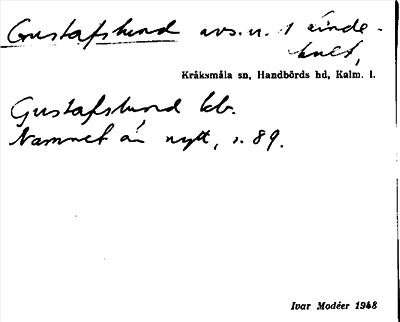 Gustafslund avs. u. 1 Linde-
hult,
Kråksmåla sn, Handbörds hd, Kalm. l.
Gustafslund kb.
Namnet är nytt, s. 89.
Ivar Modéer 1948